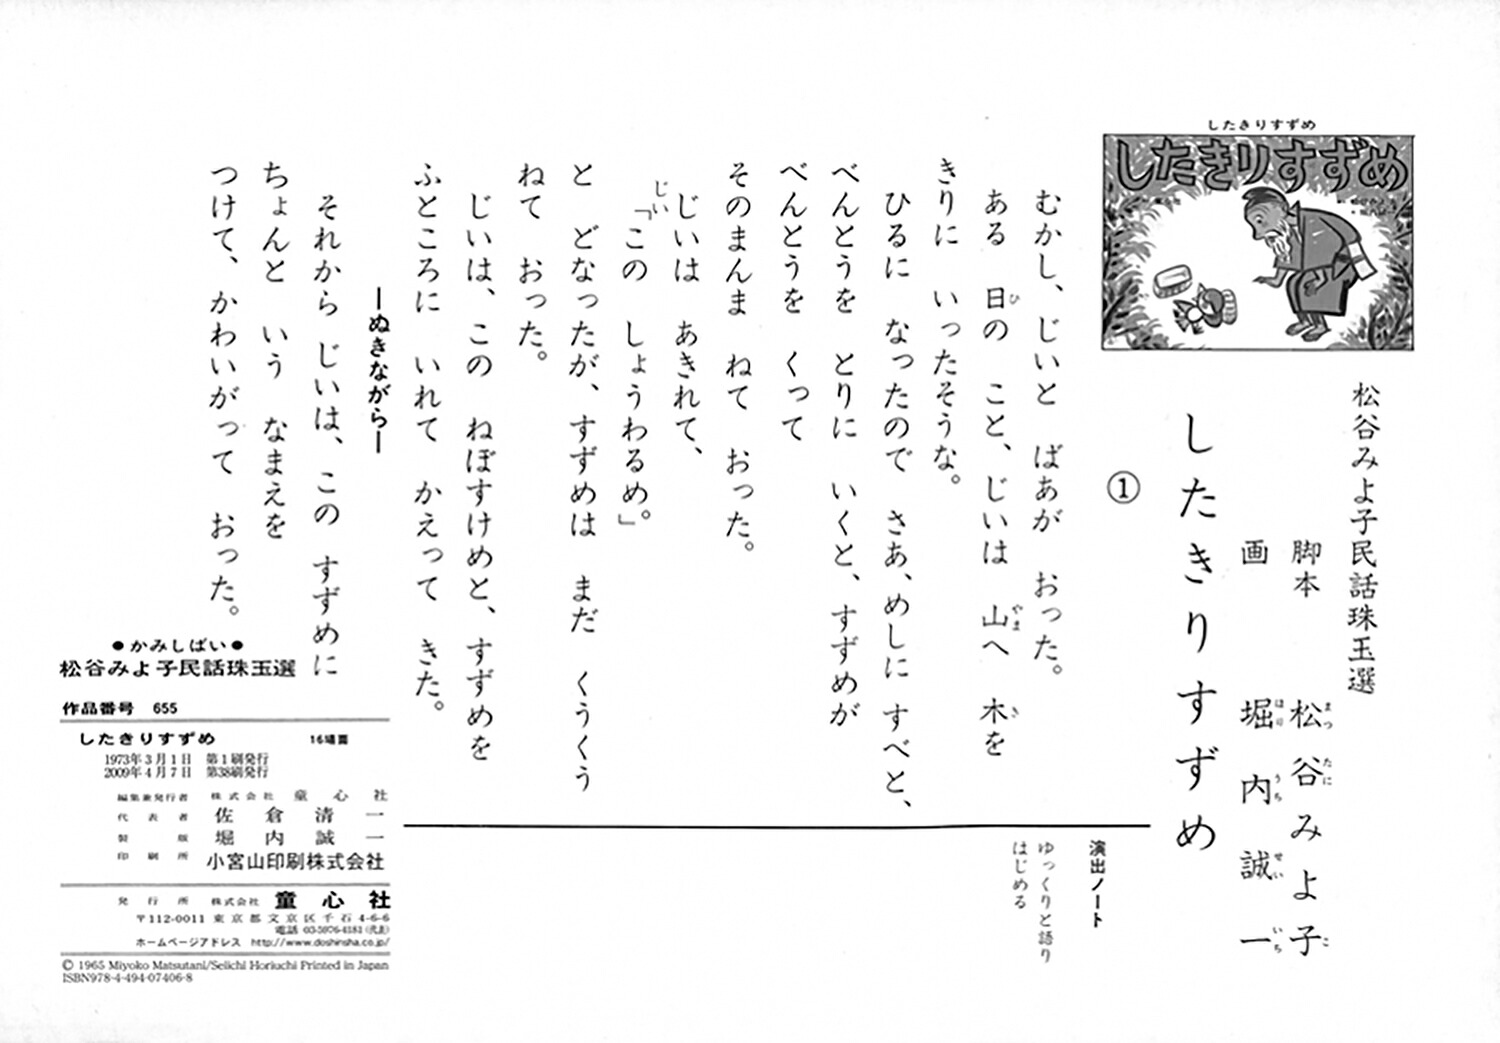 したきりすずめ
したきりすずめ
松谷みよ子民話珠玉選
脚本 松谷みよ子
まつ たに こ
画 堀内誠一
ほり うち せい いち
したきりすずめ
①
むかし、じいと ばあが おった。
ある 日の こと、じいは 山へ 木を
ひ やま き
きりに いったそうな。
ひるに なったので さあ、めしに すべと、
べんとうを とりに いくと、すずめが
べんとうを くって
そのまんま ねて おった。
じいは あきれて、
じい「この しょうわるめ。」
と どなったが、すずめは まだ くうくう
ねて おった。
じいは、この ねぼすけめと、すずめを
ふところに いれて かえって きた。
―ぬきながら―
それから じいは、この すずめに
ちょんと いう なまえを
つけて、かわいがって おった。
演出ノート
ゆっくりと語り
はじめる
●かみしばい●
松谷みよ子民話珠玉選
作品番号 655
したきりすずめ 16場面
1973年3月1日 第1刷発行
2009年4月7日 第38刷発行
編集兼発行者 株式会社 童心社
代表者 佐倉清一
製版 堀内誠一
印刷所 小宮山印刷株式会社
発行所 株式会社 童心社
〒112-0011 東京都文京区千石4-6-6
電話 03-5976-4181(代表)
ホームページアドレス http://www.doshinsha.co.jp/
© 1965 Miyoko Matsutani/Seiichi Horiuchi Printed in Japan
ISBN978-4-494-07406-8